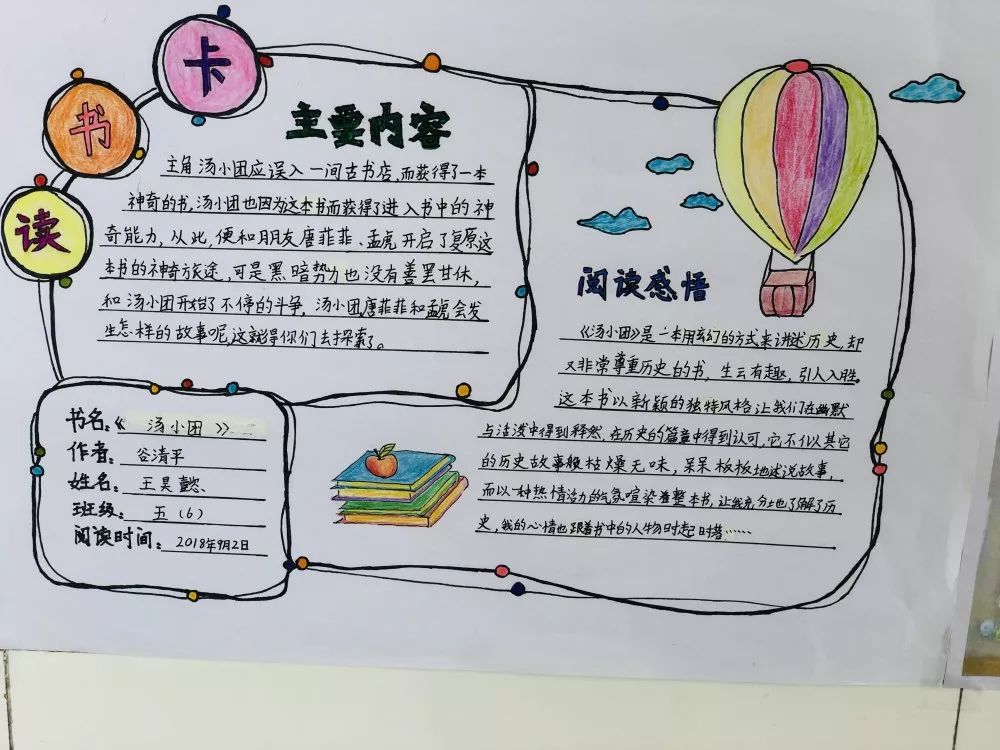 读书卡
主要内容
主角汤小团应误入一间古书店,而获得了一本
神奇的书,汤小团也因为这本书而获得了进入书中的神
奇能力,从此,便和朋友唐菲菲、孟虎开启了复原这
本书的神奇旅途,可是黑暗势力也没有善罢甘休,
和汤小团开始了不停的斗争,汤小团唐菲菲和孟虎会发
生怎样的故事呢,这就得你们去探索了。
书名:《汤小团》
作者:谷清平
姓名:王昊懿
班级:五(6)
阅读时间:2018年9月2日
阅读感悟
《汤小团》是一本用玄幻的方式来讲述历史,却
又非常尊重历史的书,生云有趣,引人入胜。
这本书以新颖的独特风格让我们在幽默
与活泼中得到释然,在历史的篇章中得到认可,它不似其它
的历史故事般枯燥无味,呆呆板板地述说故事,
而以一种热情活力的气氛喧染着整本书,让我充分地了解了历
史,我的心情也跟着书中的人物时起时落……